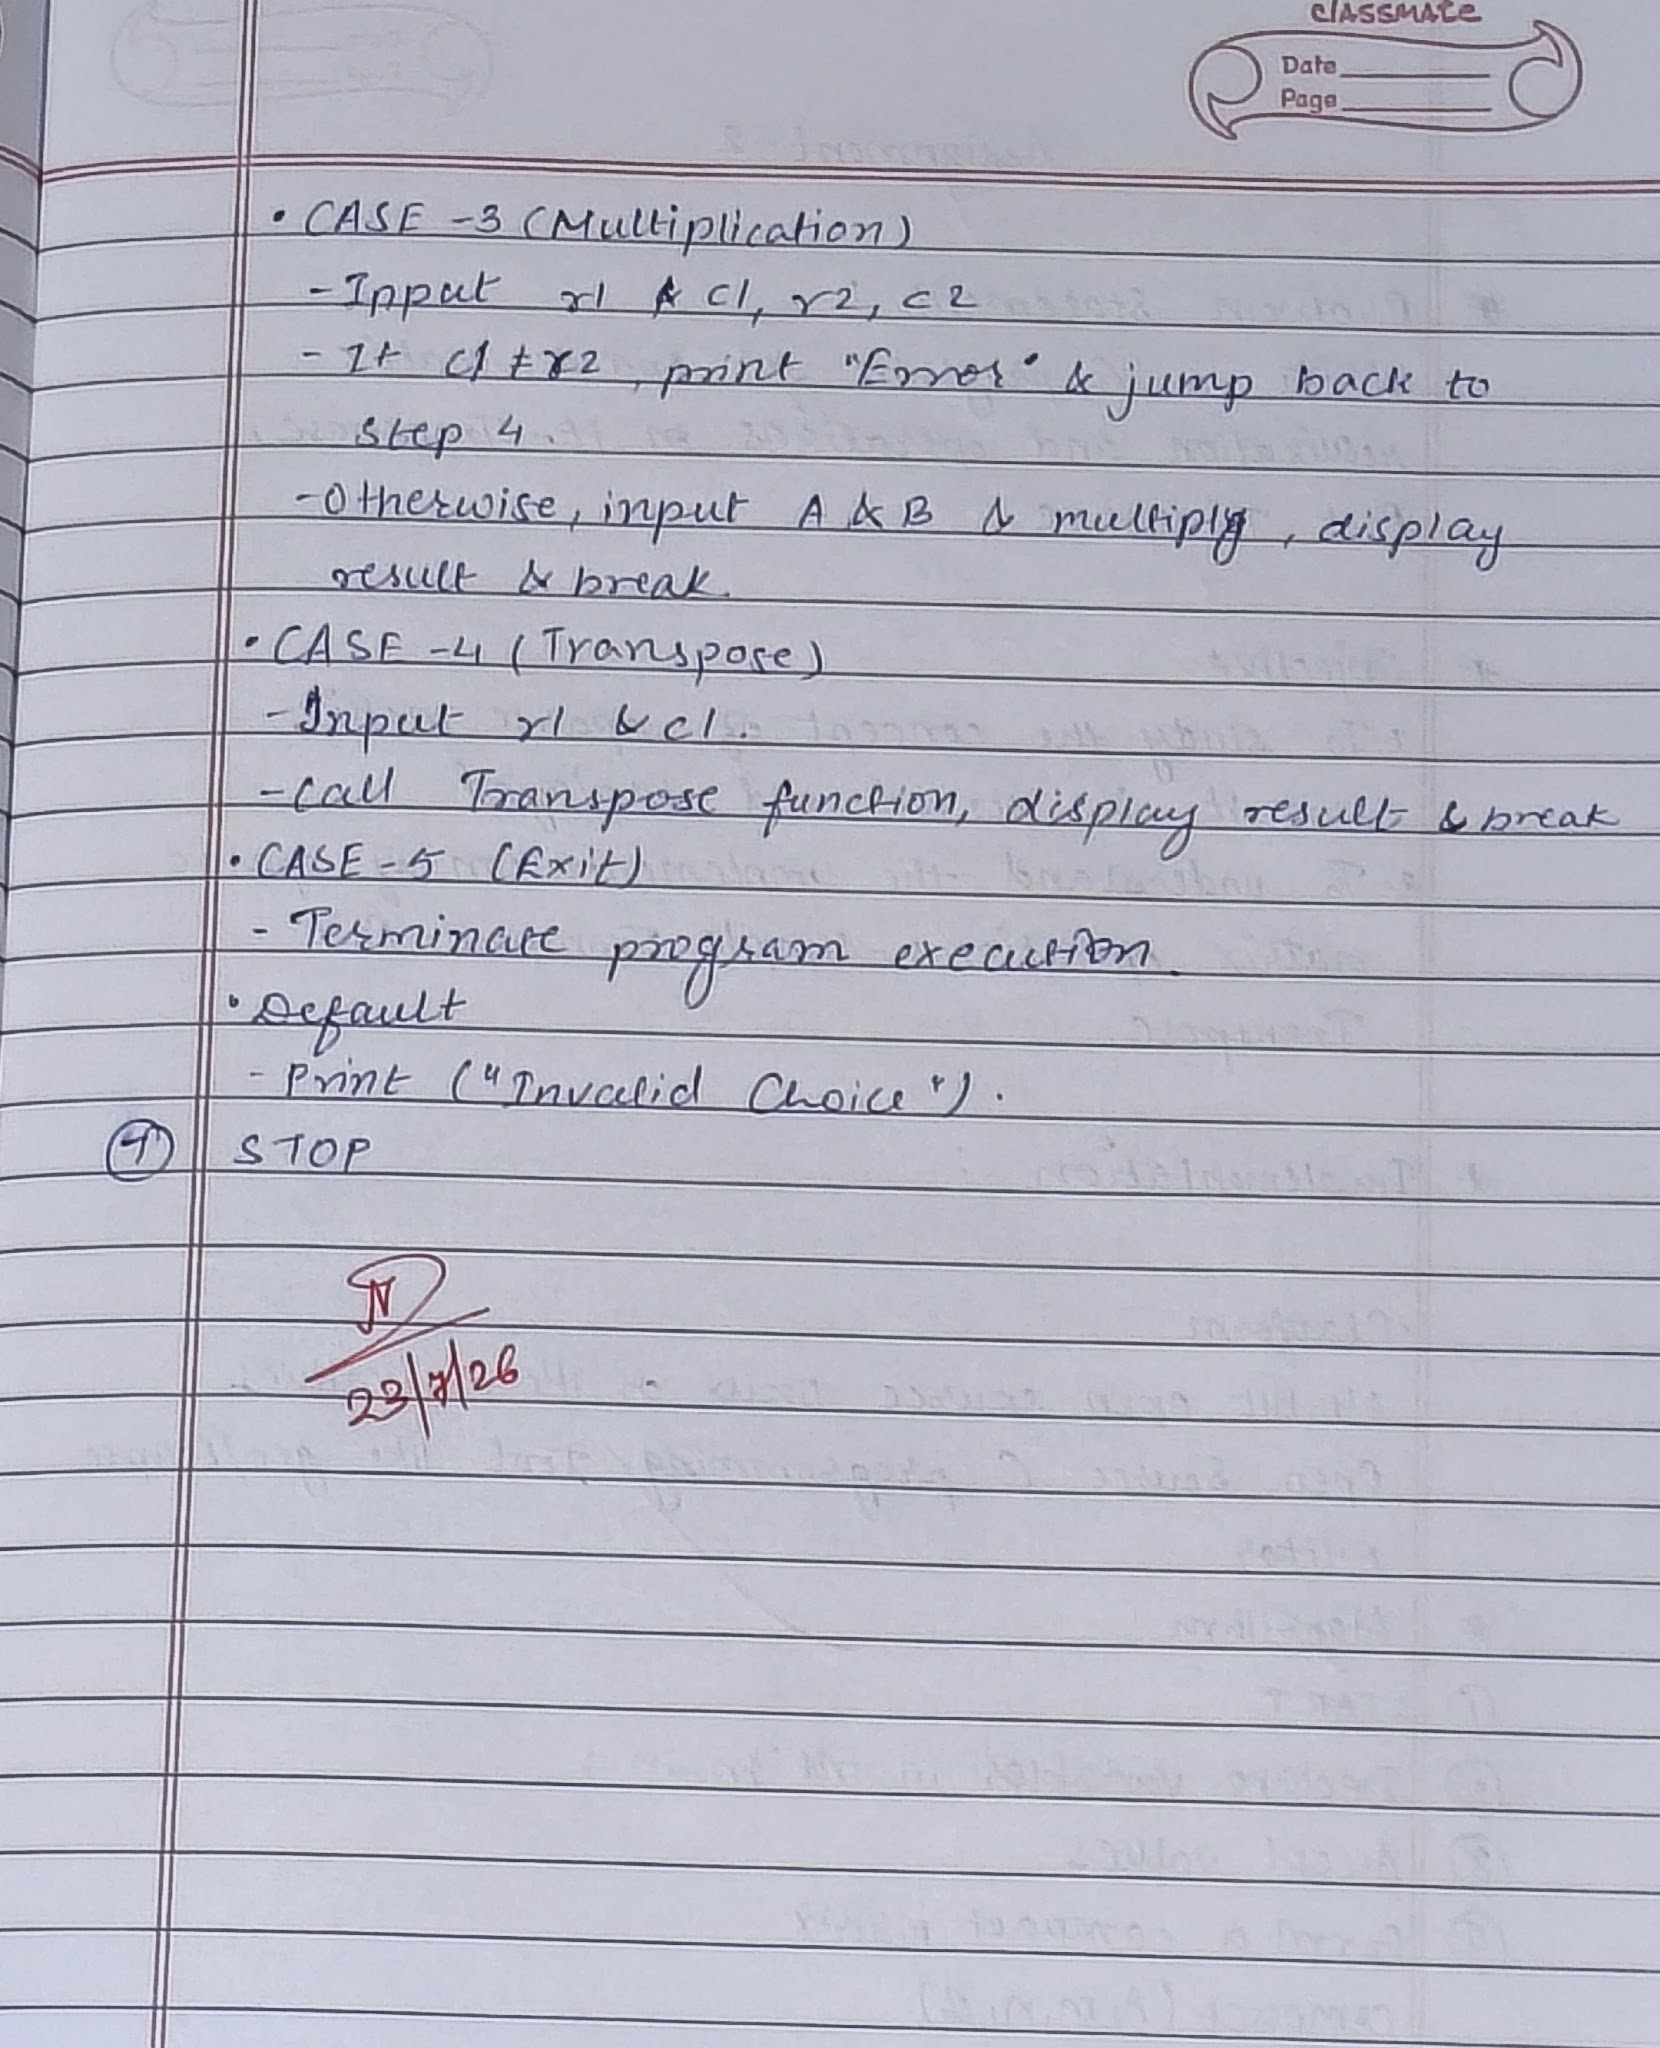 classmate
Date
Page
• CASE -3 (Multiplication)
- Input r1 & c1, r2, c2
- If c1 ≠ r2, print "Error" & jump back to
step 4
- Otherwise, input A & B & multiply, display
result & break.
• CASE -4 (Transpose)
- Input r1 & c1.
- Call Transpose function, display result & break
• CASE -5 (Exit)
- Terminate program execution.
• Default
- Print ("Invalid Choice").
7 STOP
23/7/26